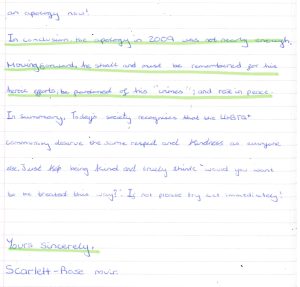 an apology now!
In conclusion the apology in 2009 was not nearly enough.
Moving forward, he shall and must be remembered for his
heroic efforts, be pardoned of his "crimes"; and rest in peace.
In summary, Today's society recognises that the LGBTQ+
community deserve the same respect and kindness as anyone
else. Just stop being and cruely think "would you want
be be treated this way?". If not please try act immediately!
Yours Sincerely,
Scarlett-Rose